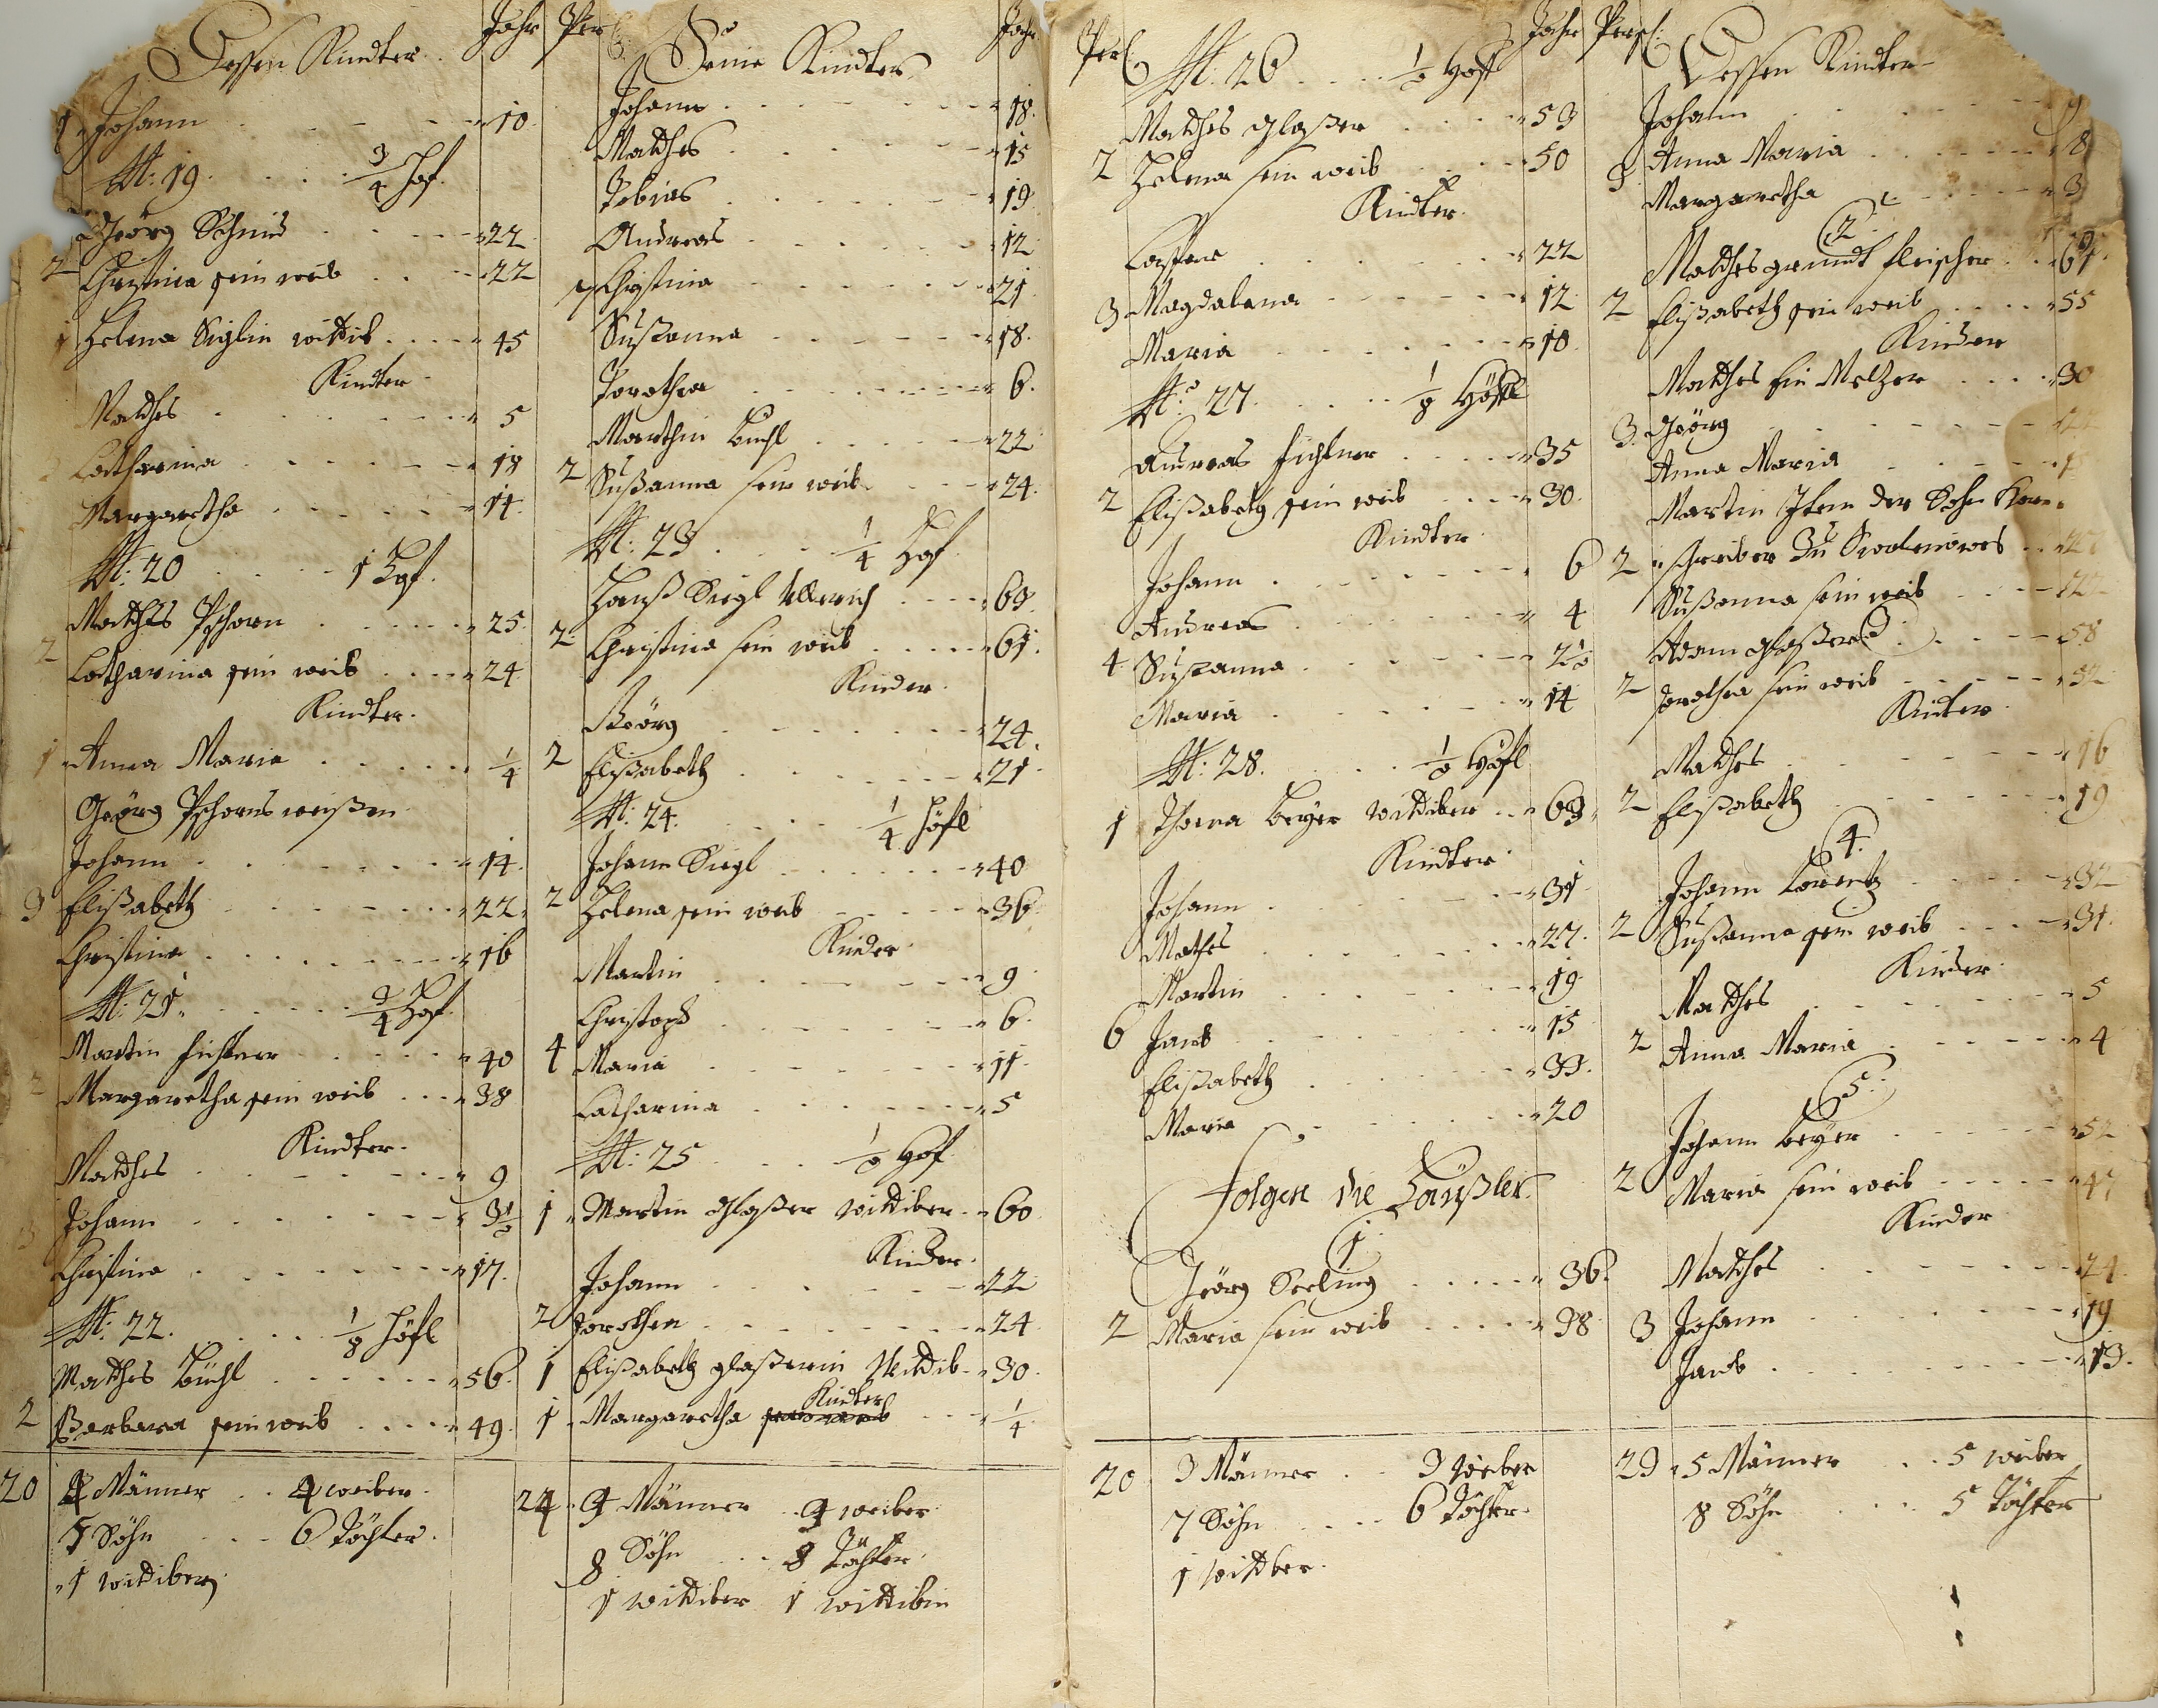 Dessen Kindter. Jahr
1 Johann 10
N: 19. 3/4 Hof.
Georg Schmid 22
2 Christina sein weib 22
1 Helena Siglin wittib 45
Kindter
Mathes 5
Catharina 18
Margaretha 14
N: 20 1 Hof.
Mathes Pschorn 25
2 Catharina sein weib 24
Kindter.
1 Anna Maria 1/4
Georg Pschorns weißen
Johann 14
3 Elißabeth 22
Christina 16
N: 21. 3/4 Hof
Martin Fichtner 40
2 Margaretha sein weib 38
Kindter.
Mathes 9
Johann 3 1/2
3 Christina 17.
N: 22. 1/8 Höfl
Mathes Büchl 56.
2 Barbara sein weib 49
20 4 Männer 4 weiber
5 Söhn 6 Töchter.
1 wittiben
Per Seine Kindter Jahr
Johann 18.
Mathes 15
Tobias 19
Andreas 12
7 Christina 21
Sußanna 18.
Dorothea 6.
Marthin Büchl 22
2 Sußanna sein weib 24.
N: 23 1/4 Hof
Hanß Siegl 63
2 Christina sein weib 61.
Kinder.
Georg 24.
2 Elißabeth 21
N: 24. 1/4 Höfl
Johann Siegl 40
2 Helena sein weib 36
Kinder
Martin 9
Christoph 6.
4 Maria 11
Catharina 5
N: 25 1/2 Hof
1 Martin Glaßer wittiber 60
Kinder.
Johann 22
2 Dorothea 24
1 Elißabeth Glaßerin Wittib 30.
Kindter
1 Margaretha sein weib 1/4
24 4 Männer 4 weiber
8 Söhn 8 Töchter
1 wittiber 1 wittibin
Pers: N: 26 1/2 Hoff Jahr
Mathes Glaßer 53
2 Helena sein weib 50
Kindter.
Caspar 22
3 Magdalena 12
Maria 10
N: 27. 1/8 Höffl
Andreas Fichtner 35
2 Elißabeth sein weib 30.
Kindter
Johann 6
Andreas 4
4 Susanna 2 1/2
Maria 14
N: 28. 1/2 Höfl
1 Thoma Beyer wittiber 63
Kindter
Johann 31
Mathes 27.
Martin 19
6 Jacob 15
Elißabeth 33.
Maria 20
Folgen die Haußler.
1
Georg Seeling 36.
2 Maria sein weib 38
20 3 Männer 3 Weiber
7 Söhn 6 Töchter.
1 wittber.
Pers: Dessen Kindter
Johann 9
3 Anna Maria 8
Margaretha 3
2
Mathes grundt fleischer 67.
2 Elißabeth sein weib 55
Kinder
Mathes ein Melzer 30
3. Georg
Anna Maria
Martin Item der Sohn
2 schreiber zu
Sußanna sein weib 22
3
Adam Glaßer 58
2 Dorothea sein weib 52
Kinter
Mathes 16
2 Elißabeth 19
4.
Johann Lorentz 32
2 Sußanna sein weib 31.
Kinder
Mathes 5
2 Anna Maria 4
5.
Johann Beyer 52
2 Maria sein weib 47
Kinder
Mathes 24.
3 Johann 19
Jacob 13.
23 5 Männer 5 weiber
8 Söhn 5 Töchter